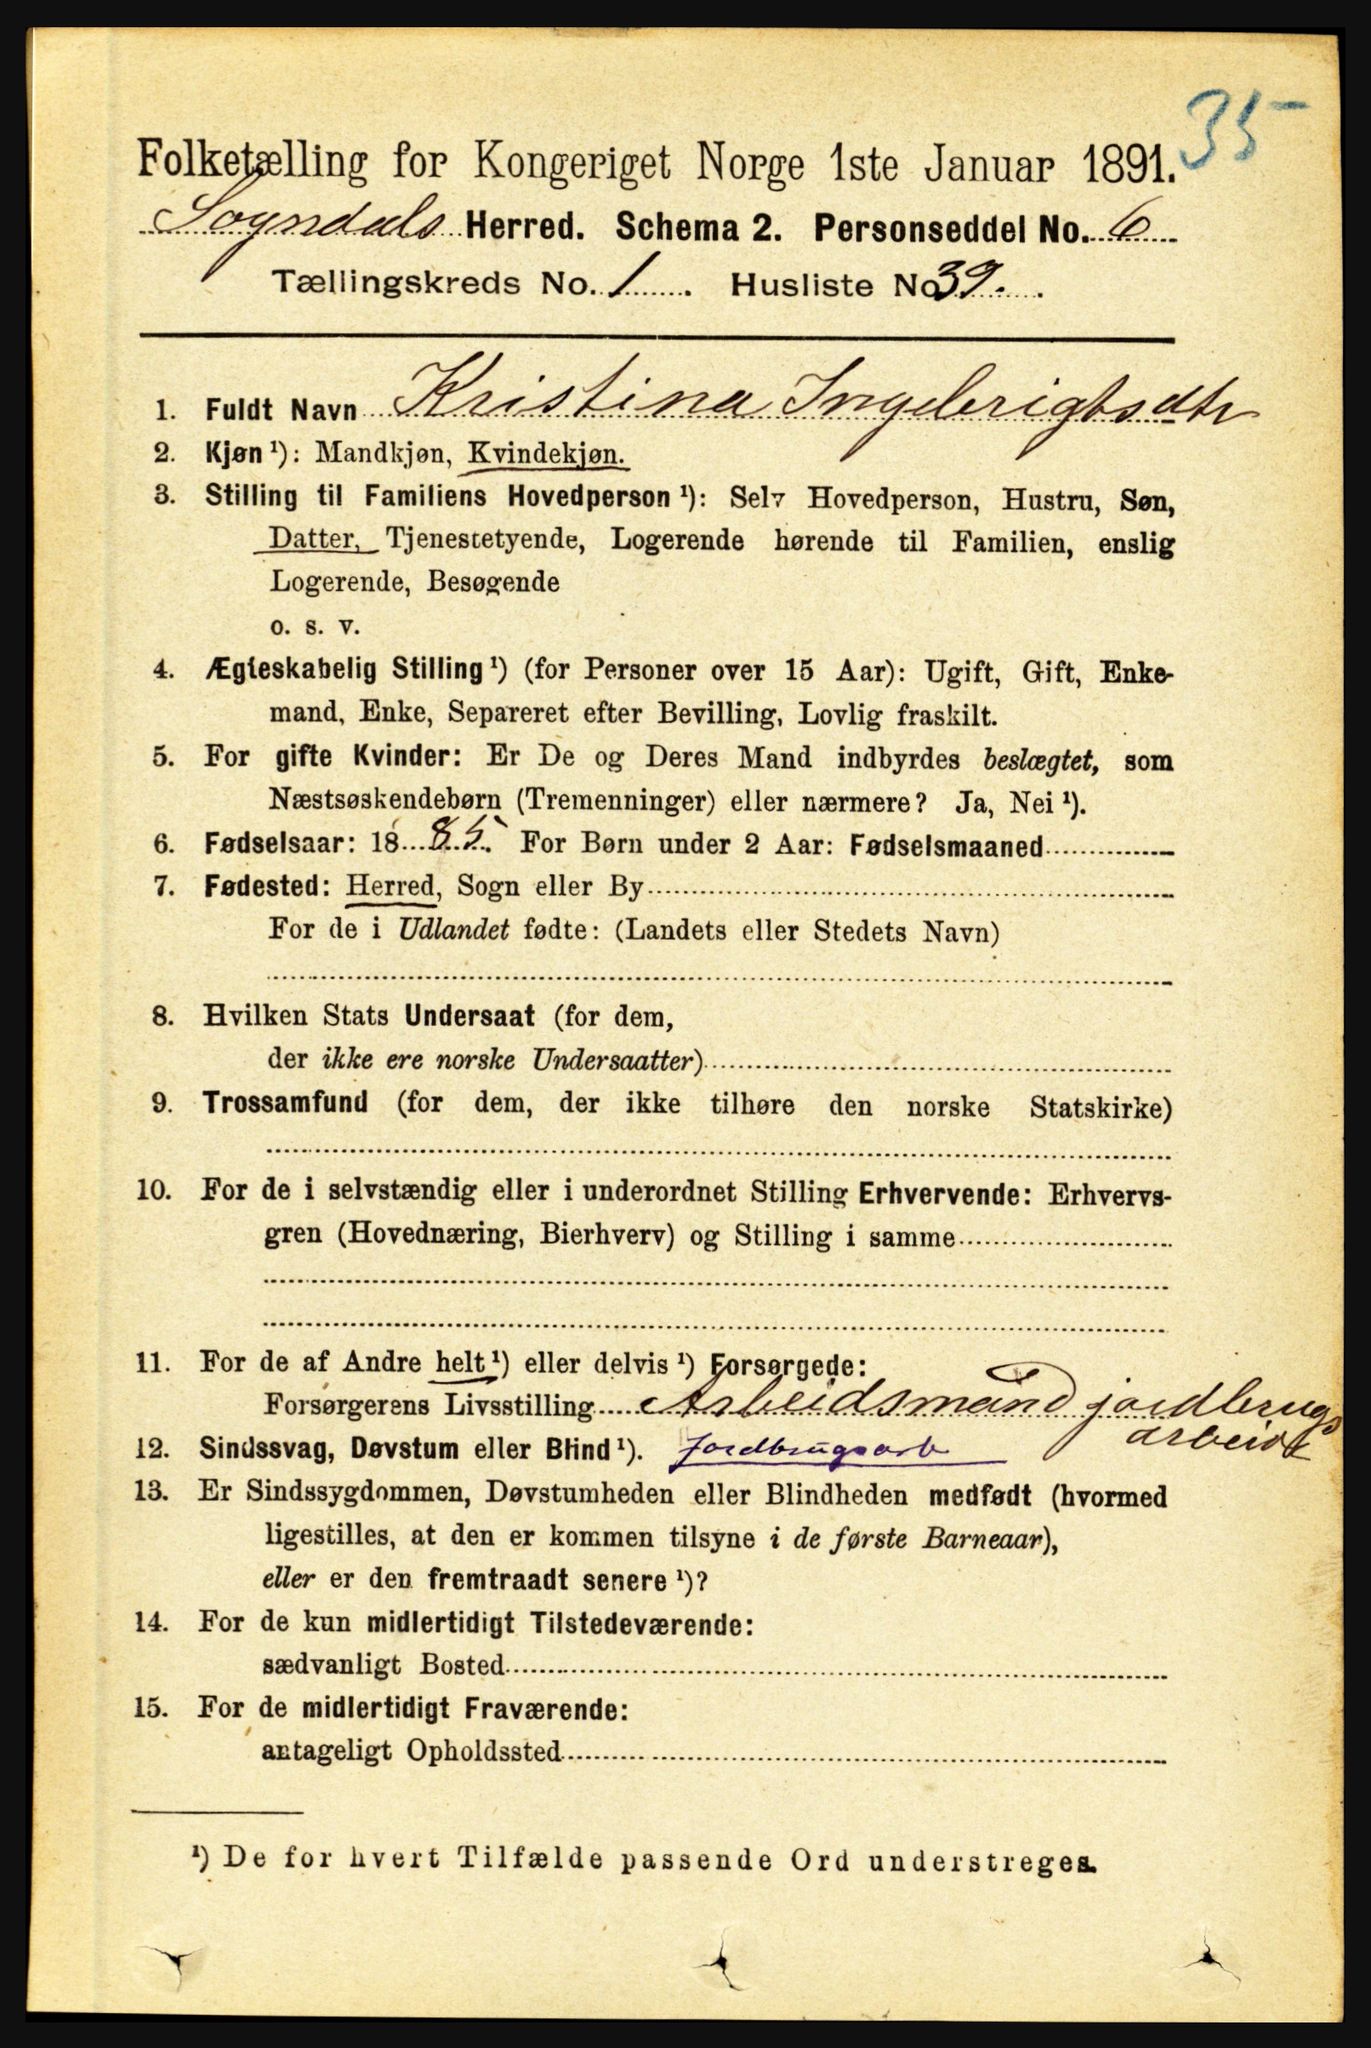 35
Folketælling for Kongeriget Norge 1ste Januar 1891.
Sogndals Herred. Schema 2. Personseddel No. 6
Tællingskreds No. 1. Husliste No 39.
1. Fuldt Navn Kristina Ingebrigtsdtr
2. Kjøn ¹): Mandkjøn, Kvindekjøn.
3. Stilling til Familiens Hovedperson ¹): Selv Hovedperson, Hustru, Søn,
Datter, Tjenestetyende, Logerende hørende til Familien, enslig
Logerende, Besøgende
o. s. v.
4. Ægteskabelig Stilling ¹) (for Personer over 15 Aar): Ugift, Gift, Enke-
mand, Enke, Separeret efter Bevilling, Lovlig fraskilt.
5. For gifte Kvinder: Er De og Deres Mand indbyrdes beslægtet, som
Næstsøskendebørn (Tremenninger) eller nærmere? Ja, Nei ¹).
6. Fødselsaar: 18 85. For Børn under 2 Aar: Fødselsmaaned
7. Fødested: Herred, Sogn eller By
For de i Udlandet fødte: (Landets eller Stedets Navn)
8. Hvilken Stats Undersaat (for dem,
der ikke ere norske Undersaatter)
9. Trossamfund (for dem, der ikke tilhøre den norske Statskirke)
10. For de i selvstændig eller i underordnet Stilling Erhvervende: Erhvervs-
gren (Hovednæring, Bierhverv) og Stilling i samme
11. For de af Andre helt ¹) eller delvis ¹) Forsørgede:
Forsørgerens Livsstilling Arbeidsmand jordbrugs
arbeide
12. Sindssvag, Døvstum eller Blind ¹). Jordbrugsarb
13. Er Sindssygdommen, Døvstumheden eller Blindheden medfødt (hvormed
ligestilles, at den er kommen tilsyne i de første Barneaar),
eller er den fremtraadt senere ¹)?
14. For de kun midlertidigt Tilstedeværende:
sædvanligt Bosted
15. For de midlertidigt Fraværende:
antageligt Opholdssted
¹) De for hvert Tilfælde passende Ord understreges.